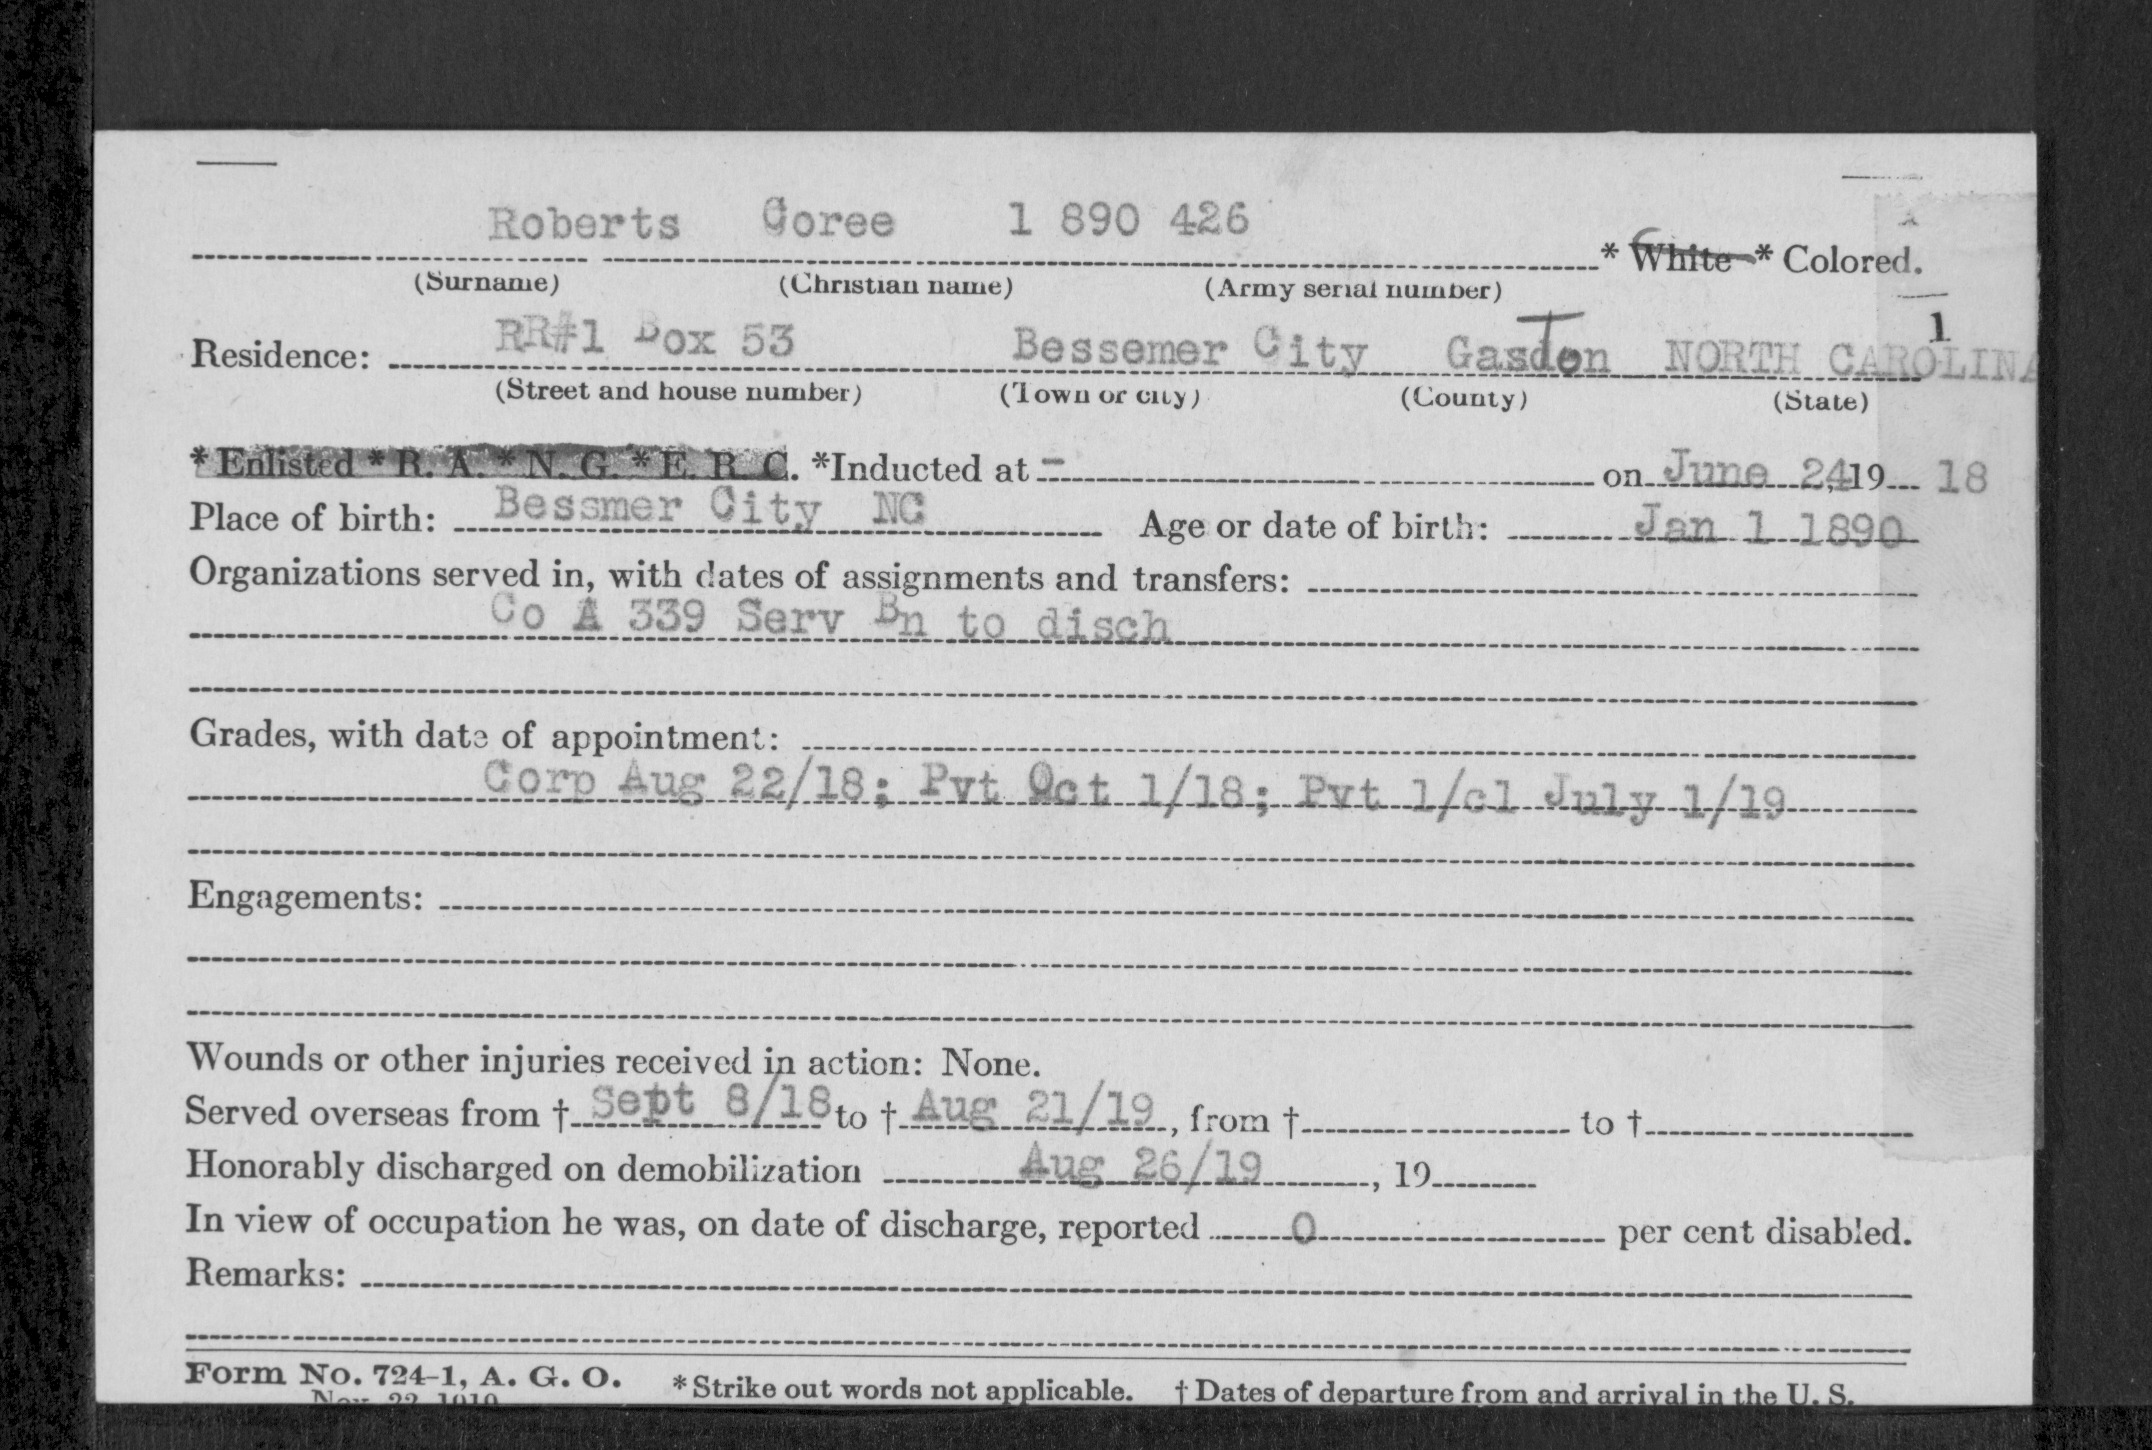 Roberts Goree 1 890 426
* White * Colored.
(Surname) (Christian name) (Army serial number)
1
Residence: RR#1 Box 53 Bessemer City Gaston NORTH CAROLINA
(Street and house number) (Town or city) (County) (State)
* Enlisted * R. A. * N. G. * E. R. C. *Inducted at - on June 24, 19 18
Place of birth: Bessmer City NC Age or date of birth: Jan 1 1890
Organizations served in, with dates of assignments and transfers:
Co A 339 Serv Bn to disch
Grades, with date of appointment:
Corp Aug 22/18; Pvt Oct 1/18; Pvt 1/cl July 1/19
Engagements:
Wounds or other injuries received in action: None.
Served overseas from † Sept 8/18 to † Aug 21/19, from † to †
Honorably discharged on demobilization Aug 26/19, 19
In view of occupation he was, on date of discharge, reported 0 per cent disabled.
Remarks:
Form No. 724-1, A. G. O. * Strike out words not applicable. † Dates of departure from and arrival in the U. S.
Nov. 22, 1919